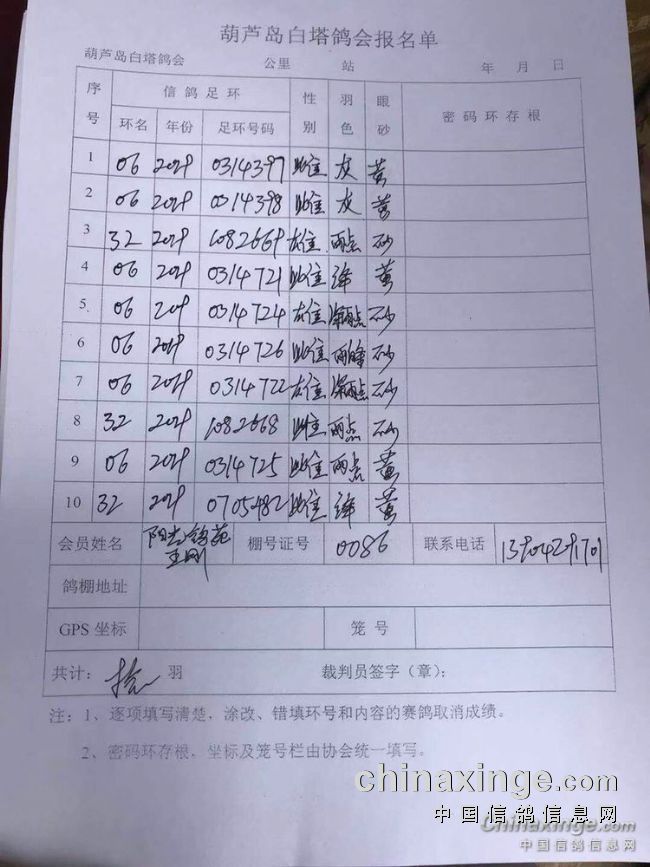 葫芦岛白塔鸽会报名单
葫芦岛白塔鸽会 公里 站 年 月 日
序号 信鸽足环 性别 羽色 眼砂 密码环存根
环名 年份 足环号码
1 06 2019 0314397 雌 灰 黄
2 06 2019 0314398 雌 灰 黄
3 32 2019 1082669 雄 雨点 砂
4 06 2019 0314721 雌 绛 黄
5 06 2019 0314724 雄 雨点 砂
6 06 2019 0314726 雌 砂
7 06 2019 0314722 雄 雨点 砂
8 32 2019 1082668 雌 雨点 砂
9 06 2019 0314725 雌 雨点 黄
10 32 2019 0705482 雌 绛 黄
会员姓名 阳光鸽苑 王刚 棚号证号 0086 联系电话
鸽棚地址
GPS 坐标 笼号
共计: 拾 羽 裁判员签字（章）:
注：1、逐项填写清楚，涂改、错填环号和内容的赛鸽取消成绩。
2、密码环存根，坐标及笼号栏由协会统一填写。
chinaxinge.com
中国信鸽信息网
Chinaxinge.com
中国信鸽信息网